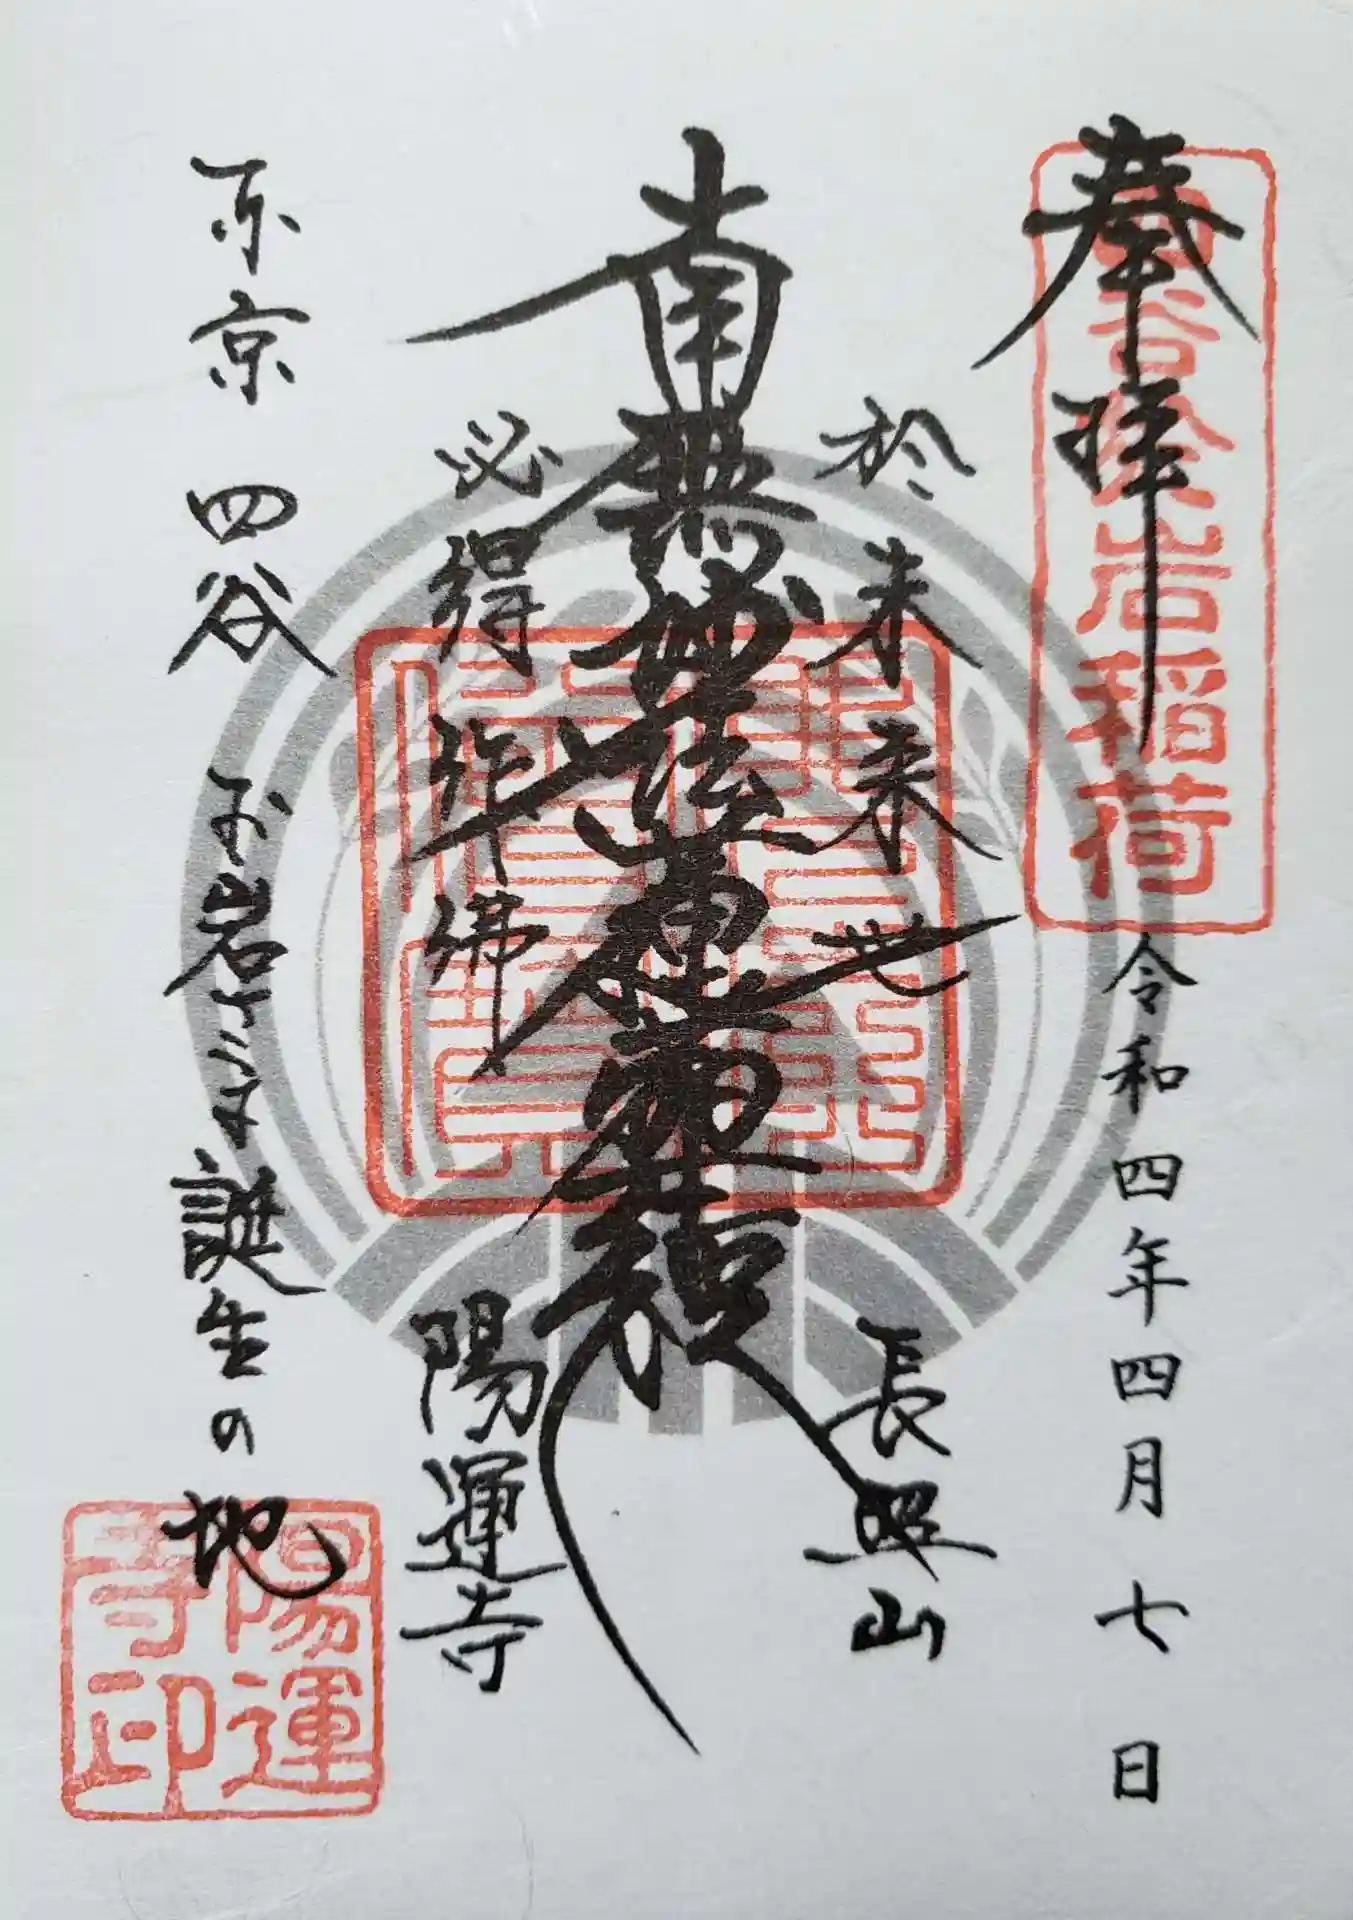 奉拝
四谷於岩稲荷
令和四年四月七日
於未来世
長照山
南無妙法蓮華経
必得作佛
陽運寺
東京 四谷 お岩さま誕生の地
陽運
寺印